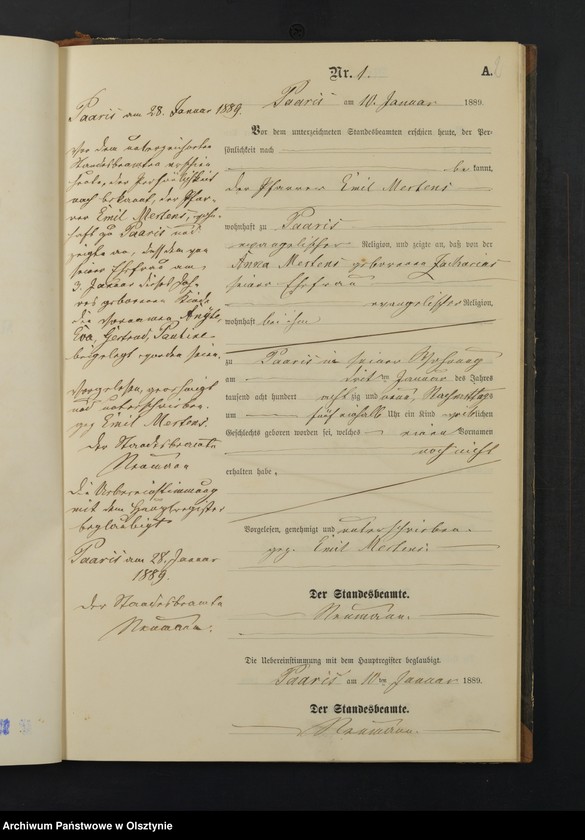 Nr. 1.
A.
Paaris am 10. Januar 1889.
Vor dem unterzeichneten Standesbeamten erschien heute, der Per-
sönlichkeit nach
be kannt,
der Pfarrer Emil Mertens
wohnhaft zu Paaris
evangelischer Religion, und zeigte an, daß von der
Anna Mertens geborenen Zacharias
seiner Ehefrau
evangelischer Religion,
wohnhaft bei ihm
zu Paaris in seiner Wohnung
am dritten Januar des Jahres
tausend acht hundert achtzig und neun, Nachmittags
um fünf einhalb Uhr ein Kind weiblichen
Geschlechts geboren worden sei, welches einen Vornamen
noch nicht
erhalten habe.
Vorgelesen, genehmigt und unterschrieben.
gez. Emil Mertens.
Der Standesbeamte.
Neumann.
Die Uebereinstimmung mit dem Hauptregister beglaubigt.
Paaris am 10ten Januar 1889.
Der Standesbeamte.
Neumann.
Paaris am 28. Januar 1889.
Vor dem unterzeichneten
Standesbeamten erschien
heute, der Persönlichkeit
nach bekannt, der Pfar-
rer Emil Mertens, wohn-
haft zu Paaris und
zeigte an, daß dem von
seiner Ehefrau am
3. Januar dieses Jah-
res geborenen Kinde
die Vornamen
Eva, Gertrud, Pauline
beigelegt worden seien.
Vorgelesen, genehmigt
und unterschrieben.
gez. Emil Mertens.
Der Standesbeamte
Neumann
Die Uebereinstimmung
mit dem Hauptregister
beglaubigt
Paaris am 28. Januar
1889.
Der Standesbeamte
Neumann.
Archiwum Państwowe w Olsztynie